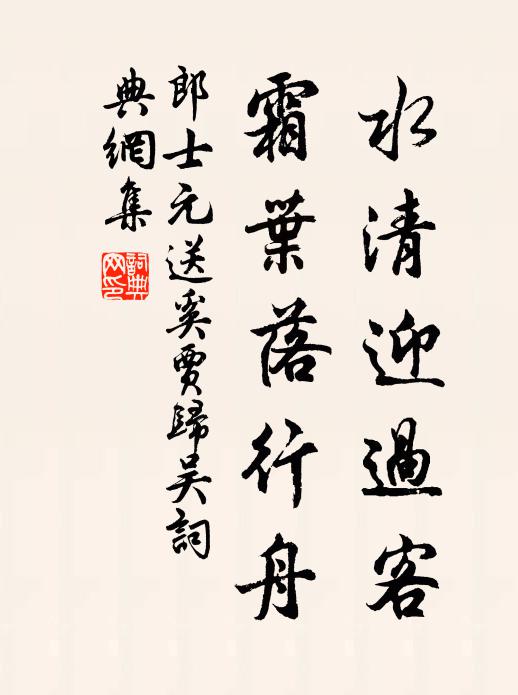 水清迎過客
霜葉落行舟
郎士元送奚賈歸吳詞
典網集
詞典网印